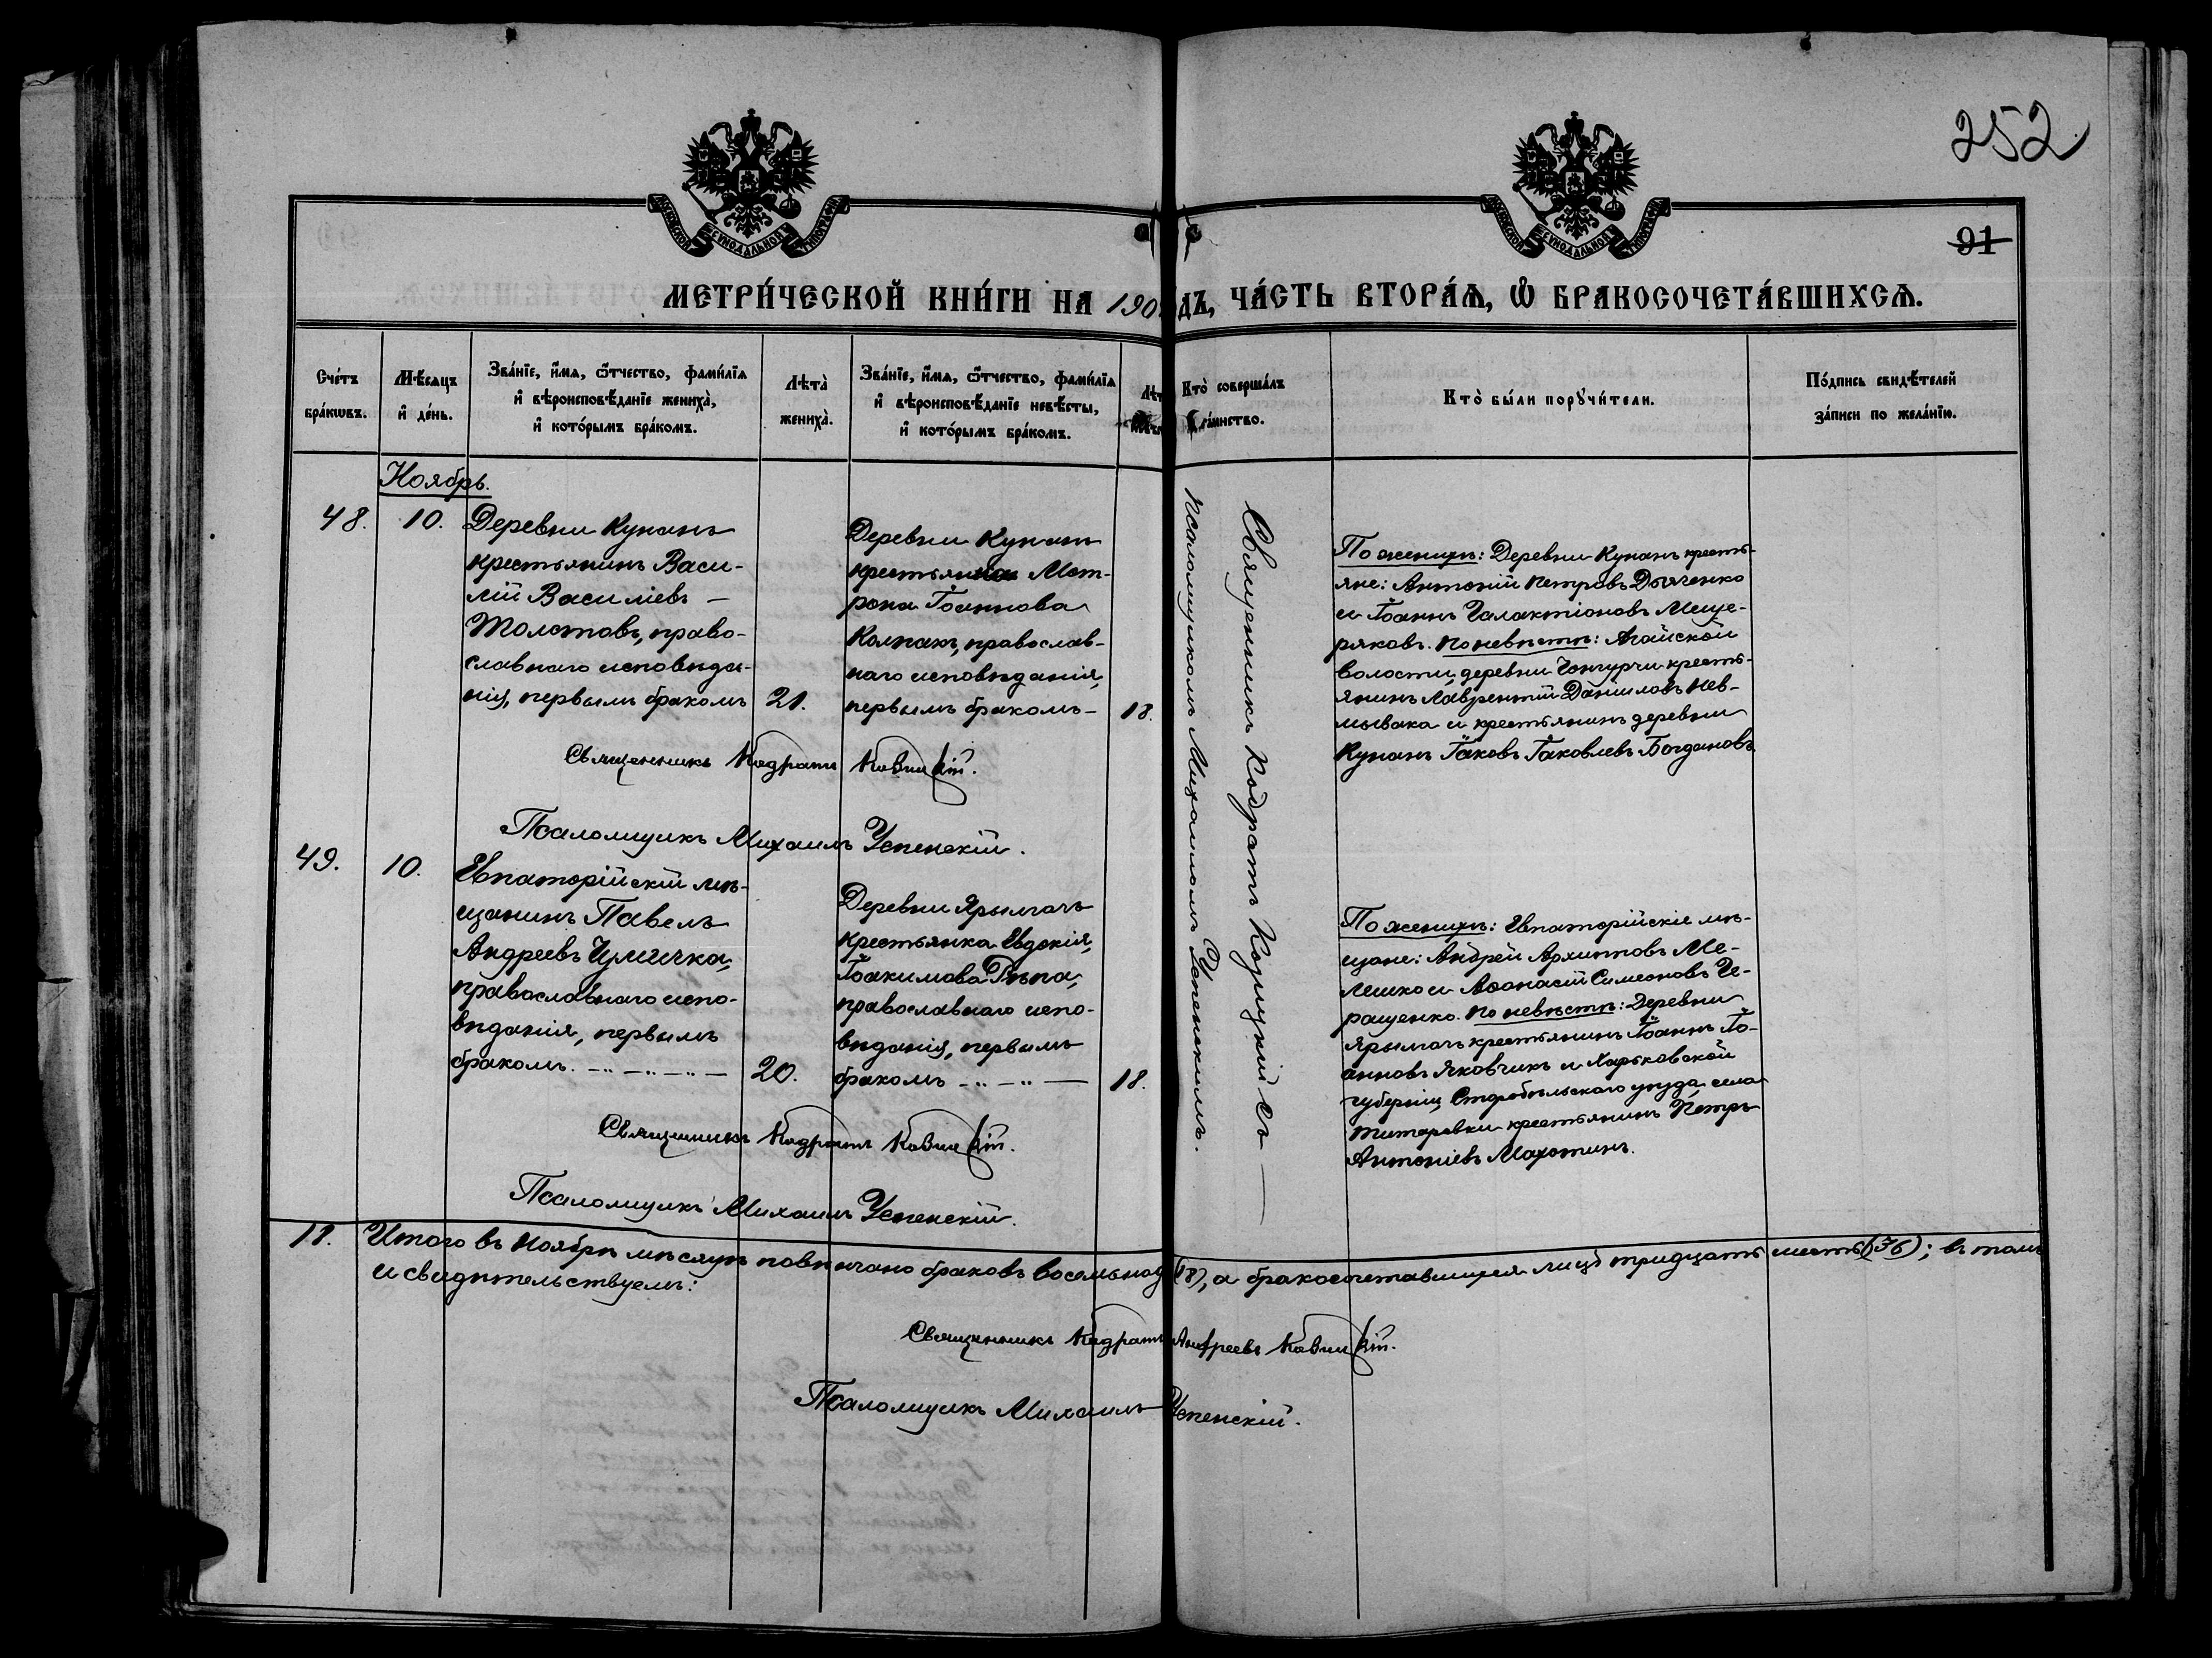 252
91
МЕТРИ́ЧЕСКОЙ КНИ́ГИ НА 190 ДЪ, ЧА́СТЬ ВТОРА́Ѧ, Ѽ БРАКОСОЧЕТА́ВШИХСѦ.
Сче́тъ
бра́кѡвъ.
Мѣ́сѧцъ
и҆ де́нь.
Зва́нїе, и҆́мѧ, ѻ҆́тчество, фами́лїѧ
и҆ вѣроисповѣ́данїе жениха̀,
и҆ кото́рымъ бра́комъ.
Лѣта̀
жениха̀.
Зва́нїе, и҆́мѧ, ѻ҆́тчество, фами́лїѧ
и҆ вѣроисповѣ́данїе невѣ́сты,
и҆ кото́рымъ бра́комъ.
Кто̀ соверша́лъ
та́инство.
Кто̀ бы́ли порꙋчи́тели.
По́дпись свидѣ́телей
за́писи по жела́нїю.
Ноябрь.
48.
10.
Деревни Кунанъ
крестьянинъ Васи-
лій Василіевъ —
Толстовъ, право-
славнаго исповѣда-
нія, первымъ бракомъ
21.
Деревни Кунанъ
крестьянка Мат-
рона Іоаннова
Колпакъ, православ-
наго исповѣданія,
первымъ бракомъ —
18.
Священникъ Кодратъ
Псаломщикъ Михаилъ Успенскій.
Священникъ Кодратъ съ
псаломщикомъ Михаиломъ Успенскимъ.
По женихѣ: Деревни Кунанъ кресть-
яне: Антоній Петровъ Дьяченко
и Іоаннъ Галактіоновъ Меще-
ряковъ. По невѣстѣ: Агайской
волости, деревни Чонгурчи кресть-
янинъ Лаврентій Даніиловъ Нев-
мывака и крестьянинъ деревни
Кунанъ Іаковъ Іаковлевъ Богдановъ
49.
10.
Евпаторійскій мѣ-
щанинъ Павелъ
Андреевъ Чумичка,
православнаго испо-
вѣданія, первымъ
бракомъ. —„—„—„—
20.
Деревни Ярымчакъ
крестьянка Евдокія,
Іоакимова Рѣпа,
православнаго испо-
вѣданія, первымъ
бракомъ —„—„—
18.
Священникъ Кодратъ
Псаломщикъ Михаилъ Успенскій.
По женихѣ: Евпаторійскіе мѣ-
щане: Андрей Архиповъ Ме-
лешко и Аѳанасій Симеоновъ Ге-
ращенко. По невѣстѣ: Деревни
крестьянинъ Іоаннъ Іо-
анновъ Яковчикъ и Харьковской
губерніи, Старобѣльскаго уѣзда села
Титаревки крестьянинъ Петръ
Антоніевъ Махотинъ.
18. Итого въ Ноябрѣ мѣсяцѣ повѣнчано браковъ восемьнад (18), а бракосочетавшихся лицъ тридцать шесть (36); въ томъ
и свидѣтельствуемъ:
Священникъ Кодратъ Андреевъ
Псаломщикъ Михаилъ Успенскій.